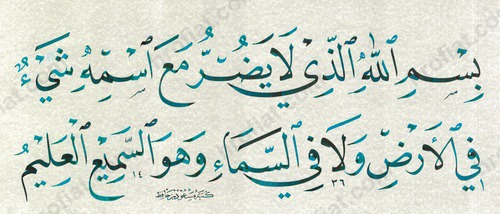 بِسْمِ ٱللّٰهِ ٱلَّذِي لَا يَضُرُّ مَعَ ٱسْمِهِ شَيْءٌ
فِي ٱلْأَرْضِ وَلَا فِي ٱلسَّمَاءِ وَهُوَ ٱلسَّمِيعُ ٱلْعَلِيمُ